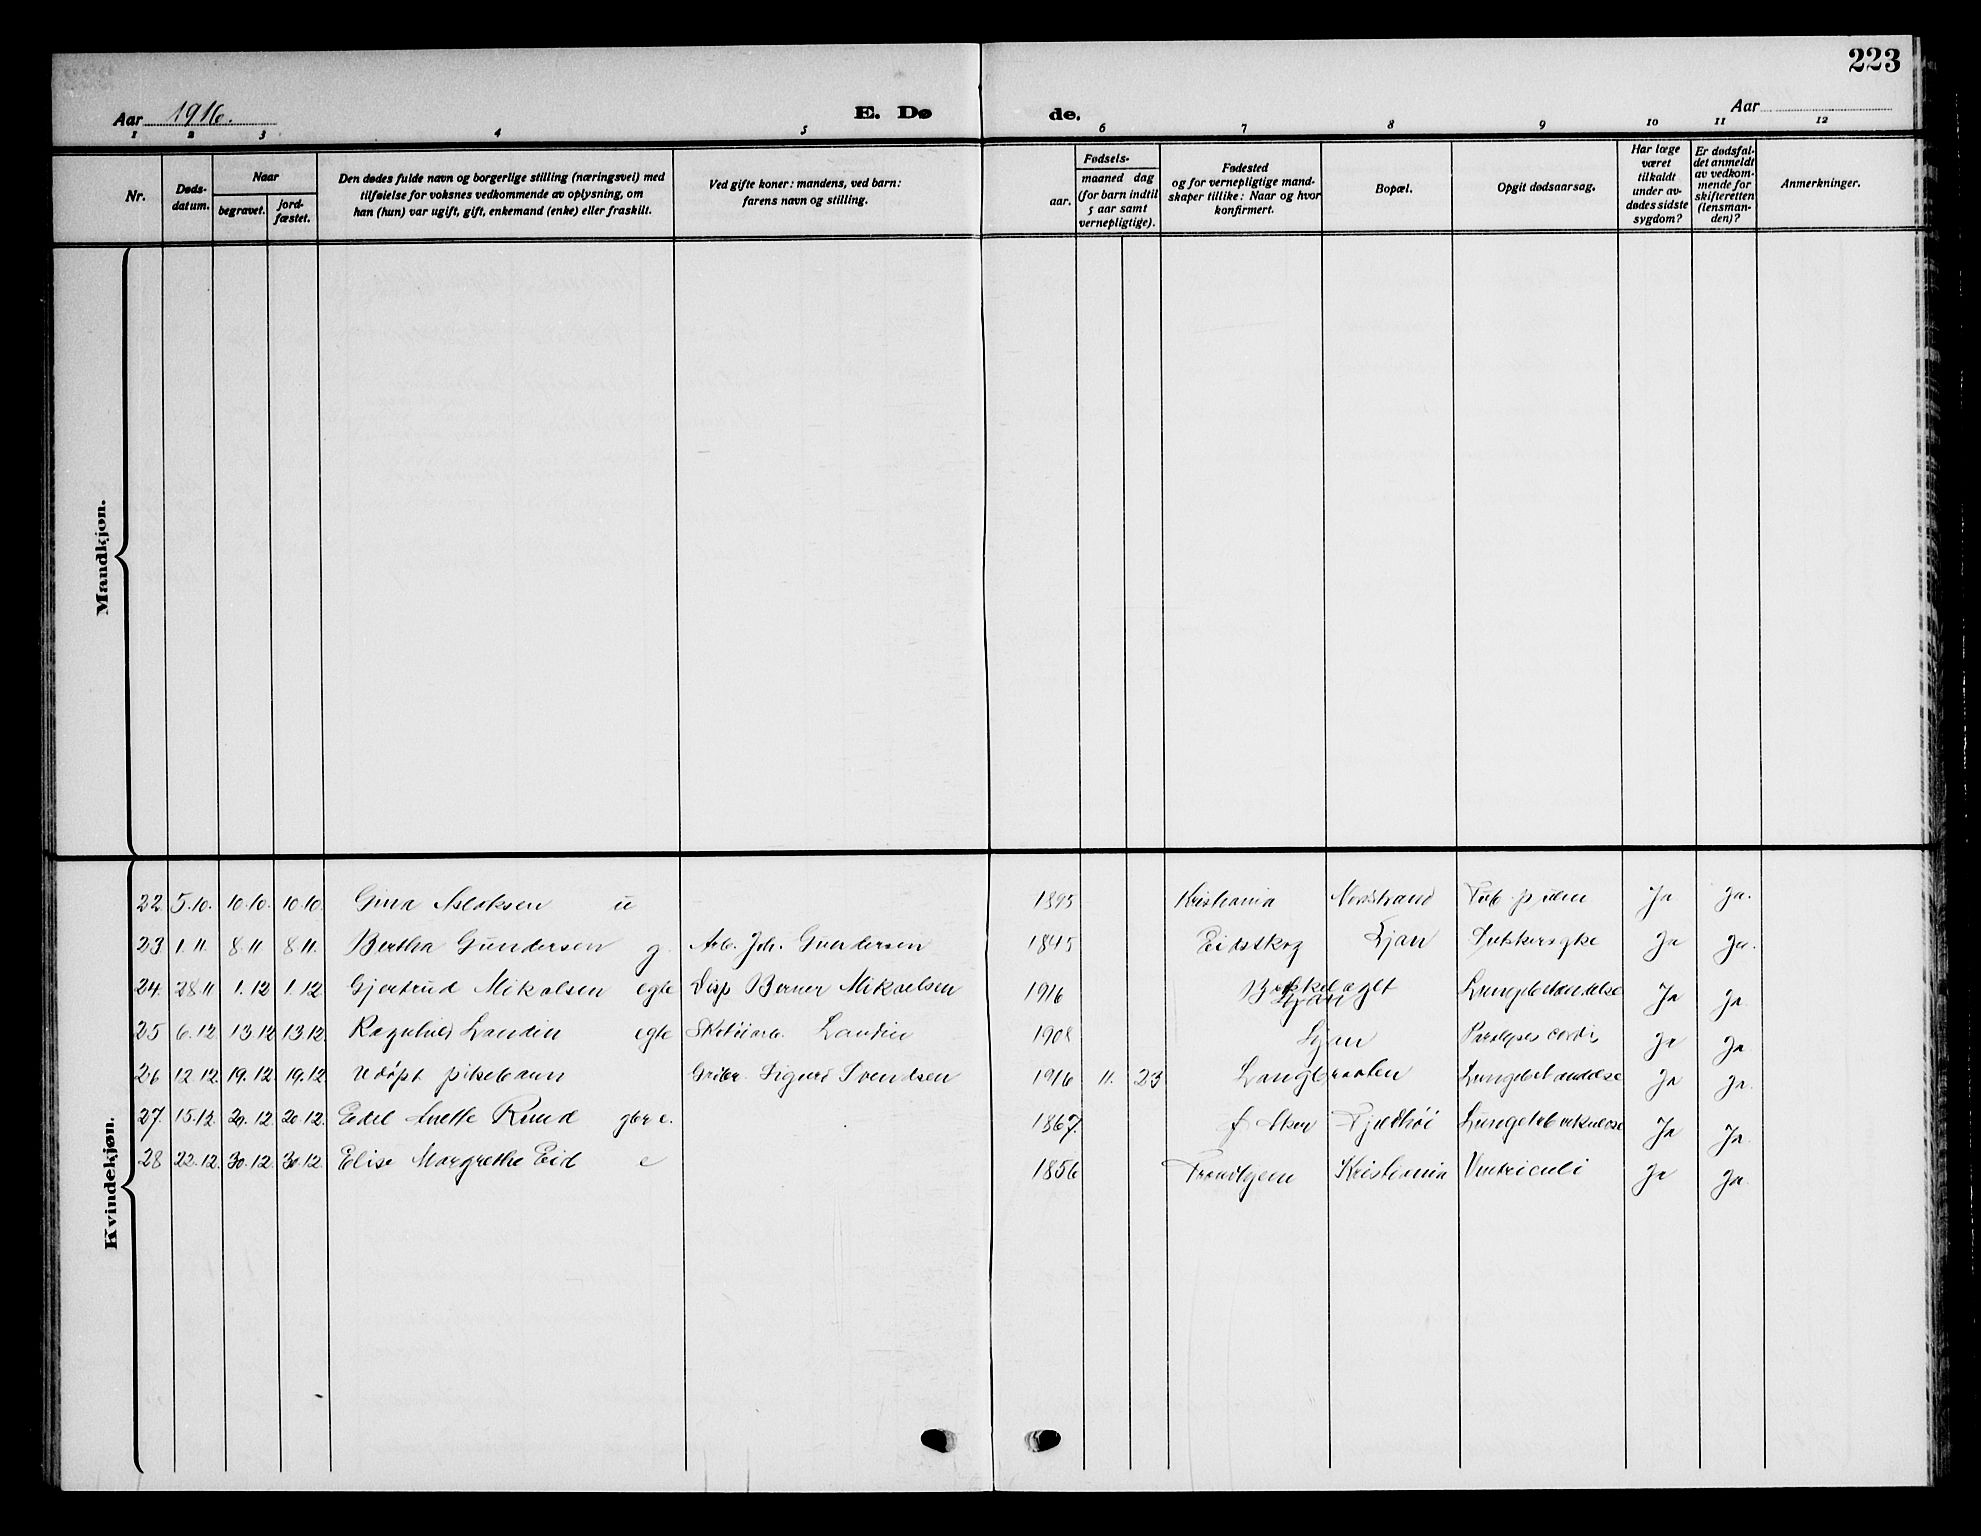 223
Aar 1916.
E. Dø
de.
Aar
1 2 3 4 5 6 7 8 9 10 11 12
Nr.
Døds-
datum.
Naar
begravet.
jord-
fæstet.
Den dødes fulde navn og borgerlige stilling (næringsvei) med
tilføielse for voksnes vedkommende av oplysning, om
han (hun) var ugift, gift, enkemand (enke) eller fraskilt.
Ved gifte koner: mandens, ved barn:
farens navn og stilling.
Fødsels-
aar.
maaned dag
(for barn indtil
5 aar samt
vernepligtige).
Fødested
og for vernepligtige mand-
skaper tillike: Naar og hvor
konfirmert.
Bopæl.
Opgit dødsaarsag.
Har læge
været
tilkaldt
under av-
dødes sidste
sygdom?
Er dødsfal-
det anmeldt
av vedkom-
mende for
skifteretten
(lensman-
den)?
Anmerkninger.
Mandkjøn.
Kvindekjøn.
22 5.10. 10.10. 10.10. Gina Aslaksen u 1895 Kristiania Nordstrand Ja Ja.
23 1.11. 8.11 8.11. Bertha Gundersen g. Arb. Joh. Gundersen 1845 Eidskog Ljan Sukkersyke Ja Ja.
24. 28.11 1.12 1.12 Gjertrud Mikalsen egte Disp Berner Mikaelsen 1916 Bækkelaget Ljan Lungebetændelse Ja Ja.
25 6.12 13.12 13.12. Ragnhild Landin egte Landin 1908 Ljan Paralyses cordis Ja Ja
26 12.12 19.12. 19.12 Udøpt pikebarn Sigurd Svendsen 1916 11. 23 Langbraaten Lungebetændelse Ja Ja.
27. 15.12. 20.12 20.12. Edel Anette Ruud gbr e. 1867. Asker Lungetuberkulose Ja Ja.
28 22.12. 30.12. 30.12. Elise Margrethe Eid e 1856 Trondhjem Kristiania Ventriculi Ja Ja.